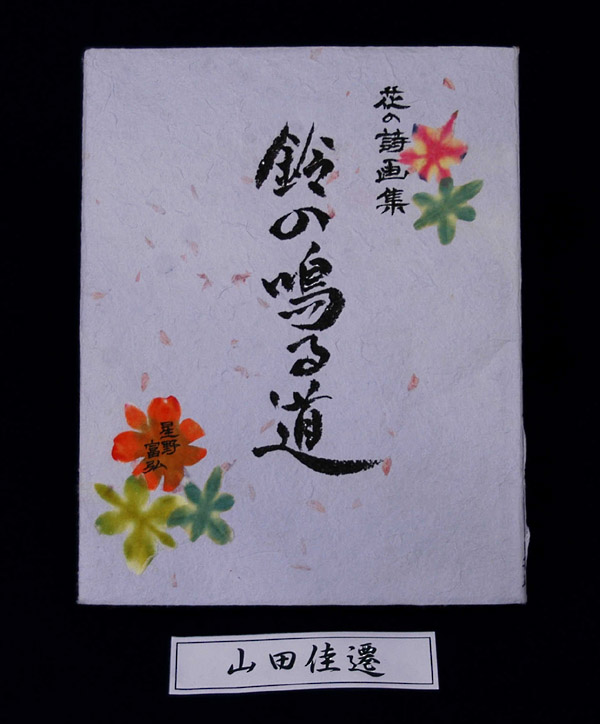 花の詩画集
鈴の鳴る道
星野
富弘
山田佳遷